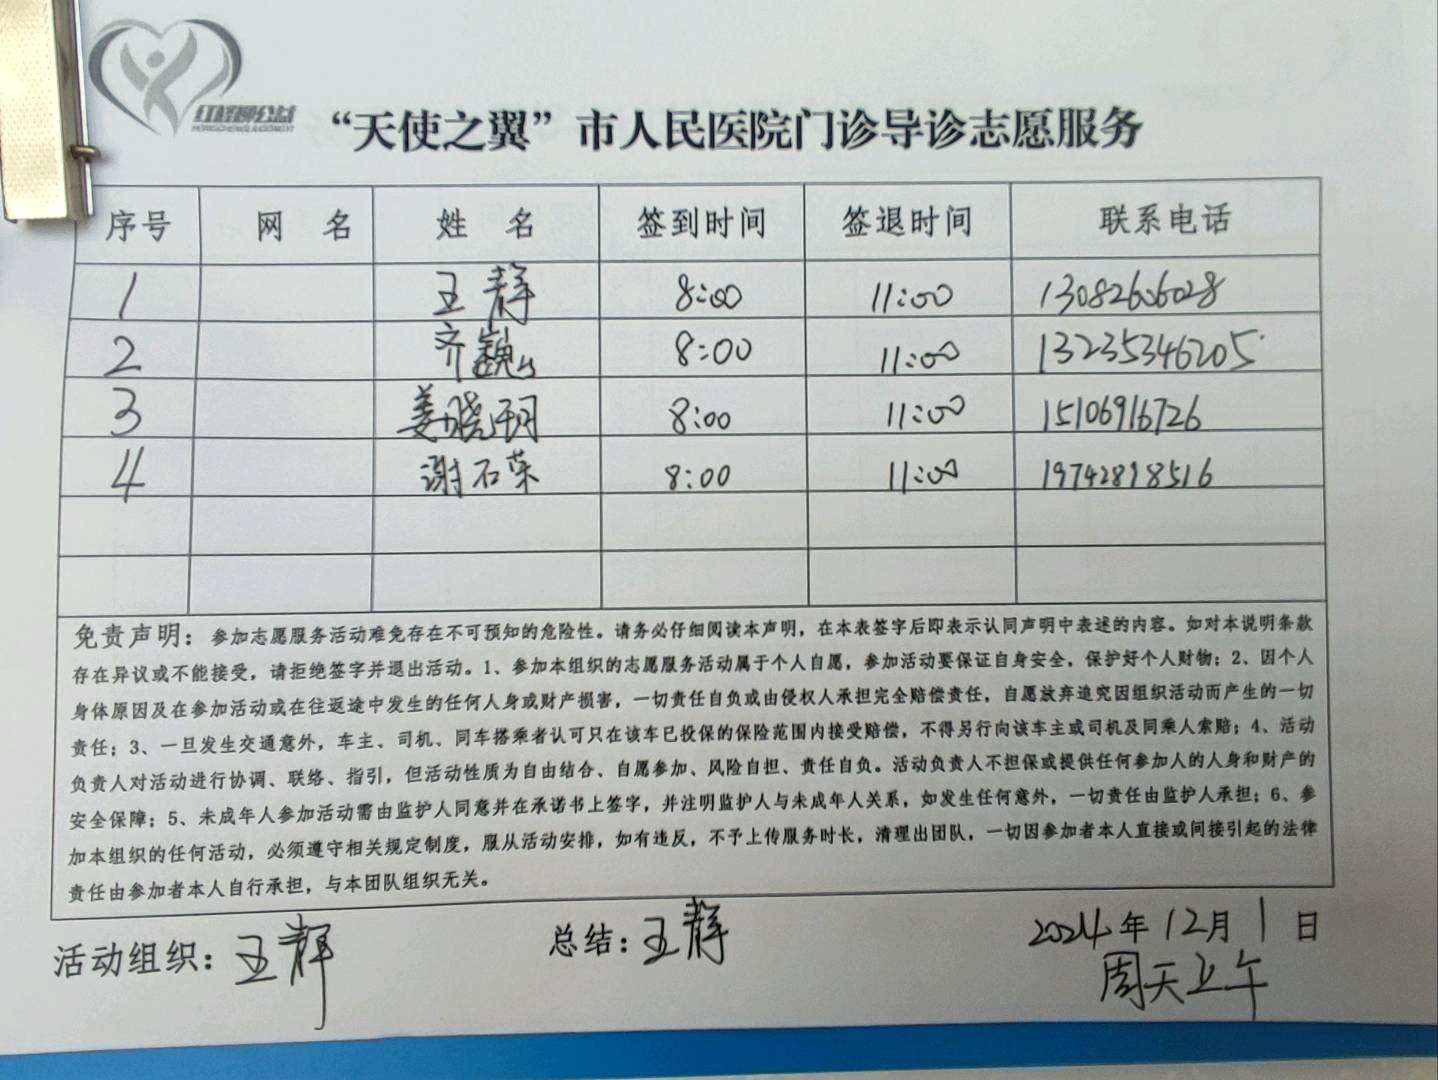 红柽柳公益
HONGCHENGLIUGONGYI
“天使之翼”市人民医院门诊导诊志愿服务
序号 网 名 姓 名 签到时间 签退时间 联系电话
1 王静 8:00 11:00 13082606028
2 齐巍 8:00 11:00 13235346205
3 姜晓玥 8:00 11:00 15106916726
4 谢石荣 8:00 11:00 19742898516
免责声明：参加志愿服务活动难免存在不可预知的危险性。请务必仔细阅读本声明，在本表签字后即表示认同声明中表述的内容。如对本说明条款
存在异议或不能接受，请拒绝签字并退出活动。1、参加本组织的志愿服务活动属于个人自愿，参加活动要保证自身安全，保护好个人财物；2、因个人
身体原因及在参加活动或在往返途中发生的任何人身或财产损害，一切责任自负或由侵权人承担完全赔偿责任，自愿放弃追究因组织活动而产生的一切
责任；3、一旦发生交通意外，车主、司机、同车搭乘者认可只在该车已投保的保险范围内接受赔偿，不得另行向该车主或司机及同乘人索赔；4、活动
负责人对活动进行协调、联络、指引，但活动性质为自由结合、自愿参加、风险自担、责任自负。活动负责人不担保或提供任何参加人的人身和财产的
安全保障；5、未成年人参加活动需由监护人同意并在承诺书上签字，并注明监护人与未成年人关系，如发生任何意外，一切责任由监护人承担；6、参
加本组织的任何活动，必须遵守相关规定制度，服从活动安排，如有违反，不予上传服务时长，清理出团队，一切因参加者本人直接或间接引起的法律
责任由参加者本人自行承担，与本团队组织无关。
活动组织：王静 总结：王静 2024年12月1日
周天上午